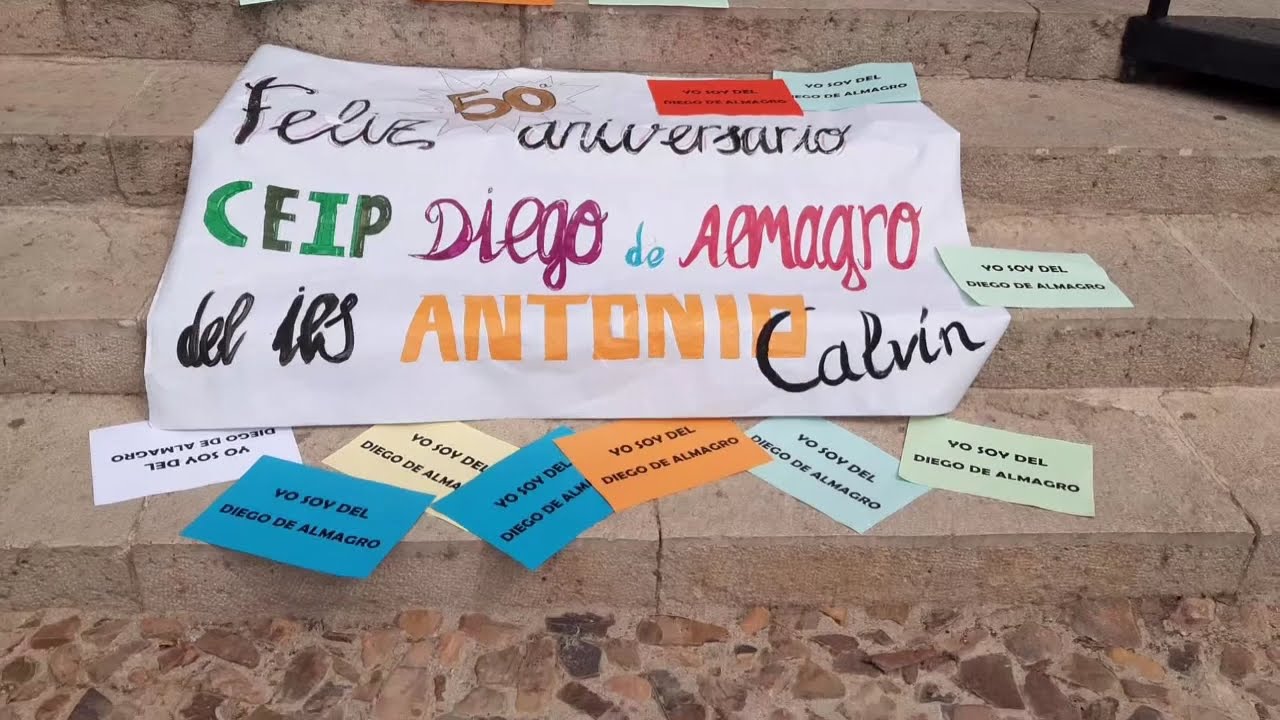 Feliz 50ª aniversario
CEIP Diego de ALMAGRO
del IES ANTONIO Calvín
YO SOY DEL
DIEGO DE ALMAGRO
YO SOY DEL
DIEGO DE ALMAGRO
YO SOY DEL
DIEGO DE ALMAGRO
YO SOY DEL
DIEGO DE ALMAGRO
YO SOY DEL
DIEGO DE ALMAGRO
YO SOY DEL
DIEGO DE ALMA
YO SOY DEL
DIEGO DE ALM
YO SOY DEL
DIEGO DE ALMAGRO
YO SOY DEL
DIEGO DE ALMAGRO
YO SOY DEL
DIEGO DE ALMAGRO